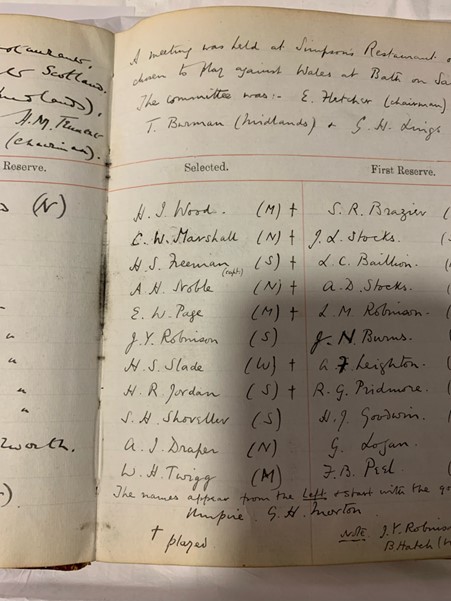 Scotland.
A meeting was held at Simpson's Restaurant
chosen to play against Wales at Bath on
The committee was:- E. Fletcher (chairman)
T. Burman (Midlands) + G. H.
(chairman).
Reserve.
Selected.
First Reserve.
(N)
H. J. Wood. (M) † S. R. Brazier
C. W. Marshall (N) † J. L. Stocks.
H. S. Freeman (capt.) (S) † L. C. Baillion.
A H Noble (N) † A. D. Stocks.
E. W. Page (M) † L. M. Robinson.
J. Y. Robinson (S) J. N Burns.
H. S. Slade (W) † A. F Leighton.
H R Jordan (S) † R. G. Pridmore.
S. H. Shoveller (S) H. J. Goodwin.
A. J. Draper (N) G. Logan.
W. H. Twigg (M) F. B. Peel.
The names appear from the Left & start with the
Umpire G. H. Morton
† played
NOTE J. Y.
B Hatch